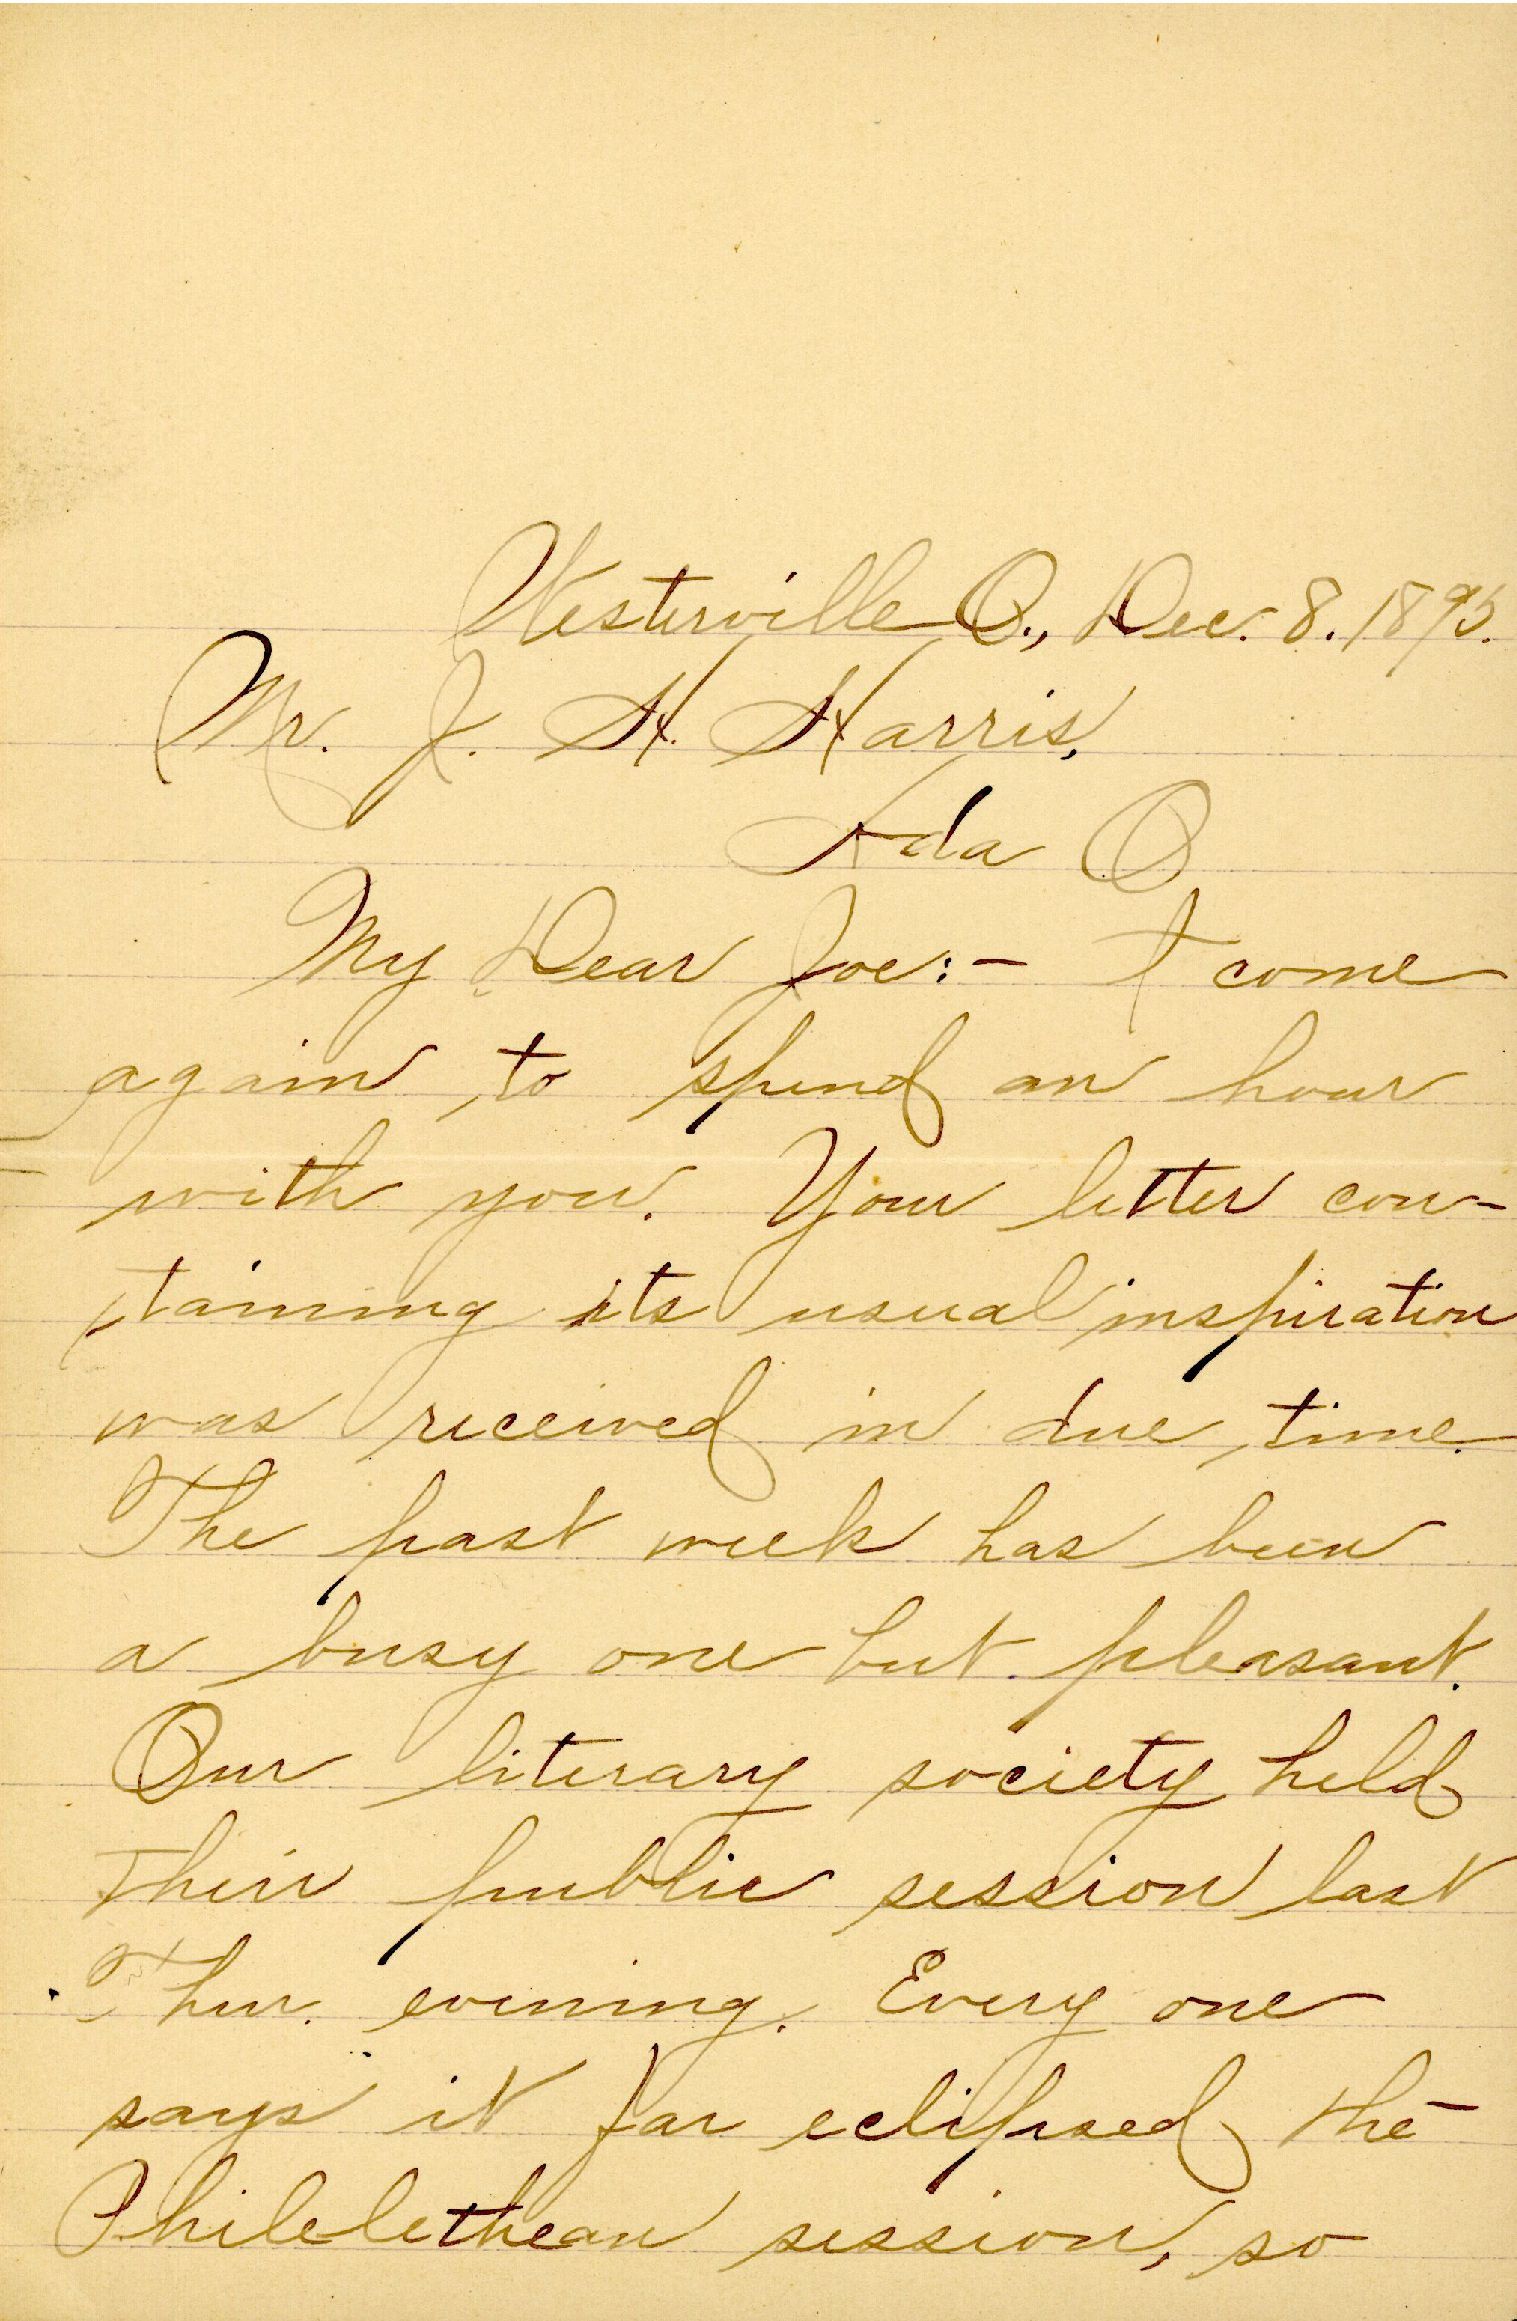 Westerville O., Dec. 8. 1895.
Mr. J. H. Harris,
Ada O
My Dear Joe:- I come
again to spend an hour
with you. Your letter con-
taining its usual inspiration
was received in due time.
The past week has been
a busy one but pleasant.
Our literary society held
their public session last
Thur. evening. Every one
says it far eclipsed the
Philelethean session, so